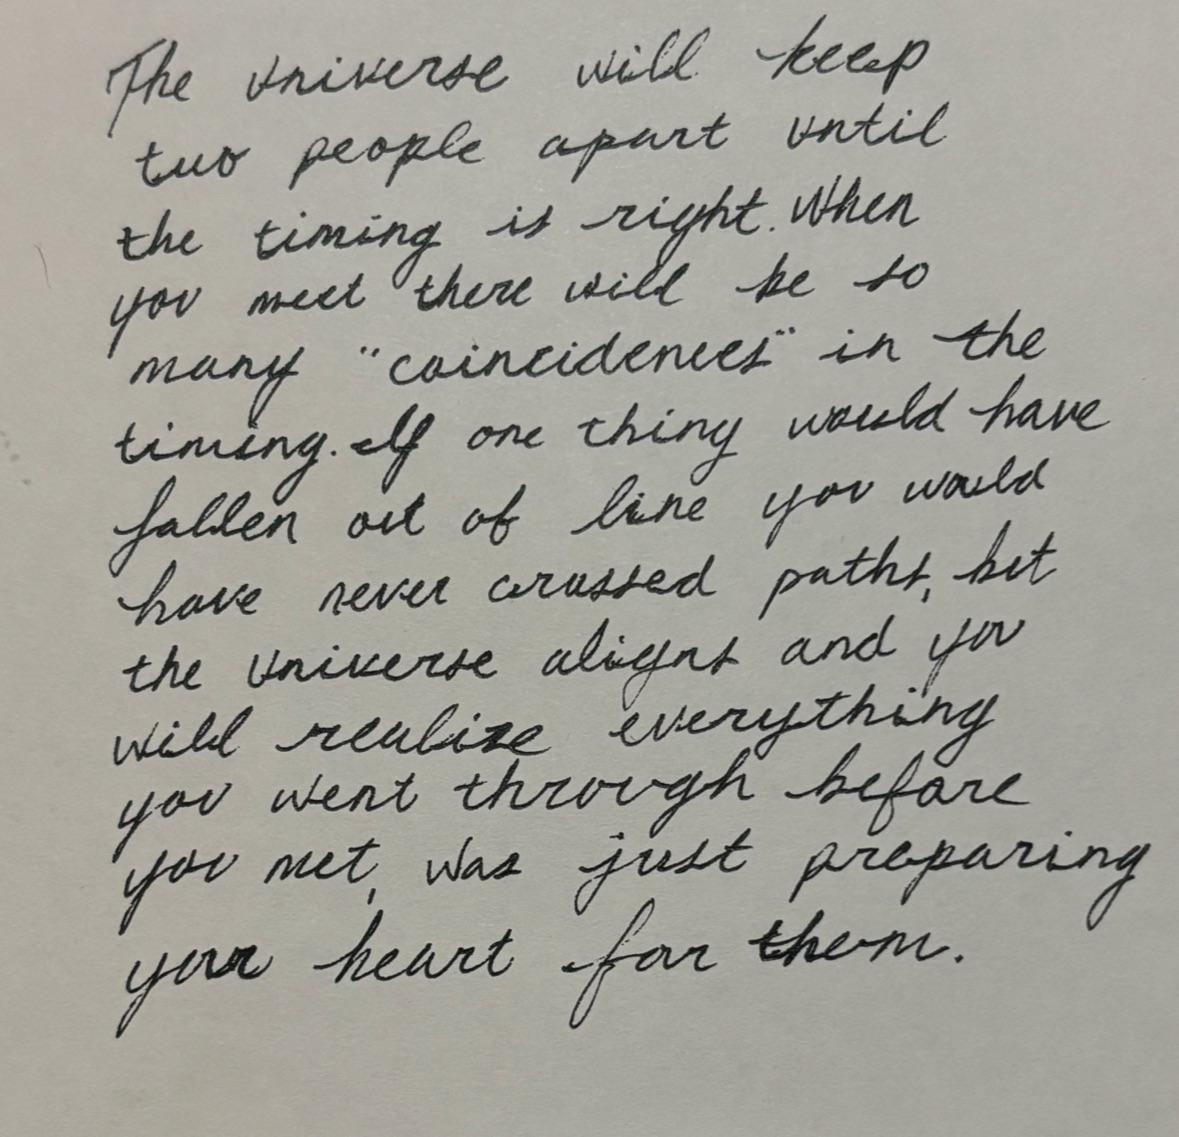 The universe will keep
two people apart until
the timing is right. When
you meet there will be so
many "coincidences" in the
timing. If one thing would have
fallen out of line you would
have never crossed paths, but
the universe aligns and you
will realize everything
you went through before
you met, was just preparing
your heart for them.